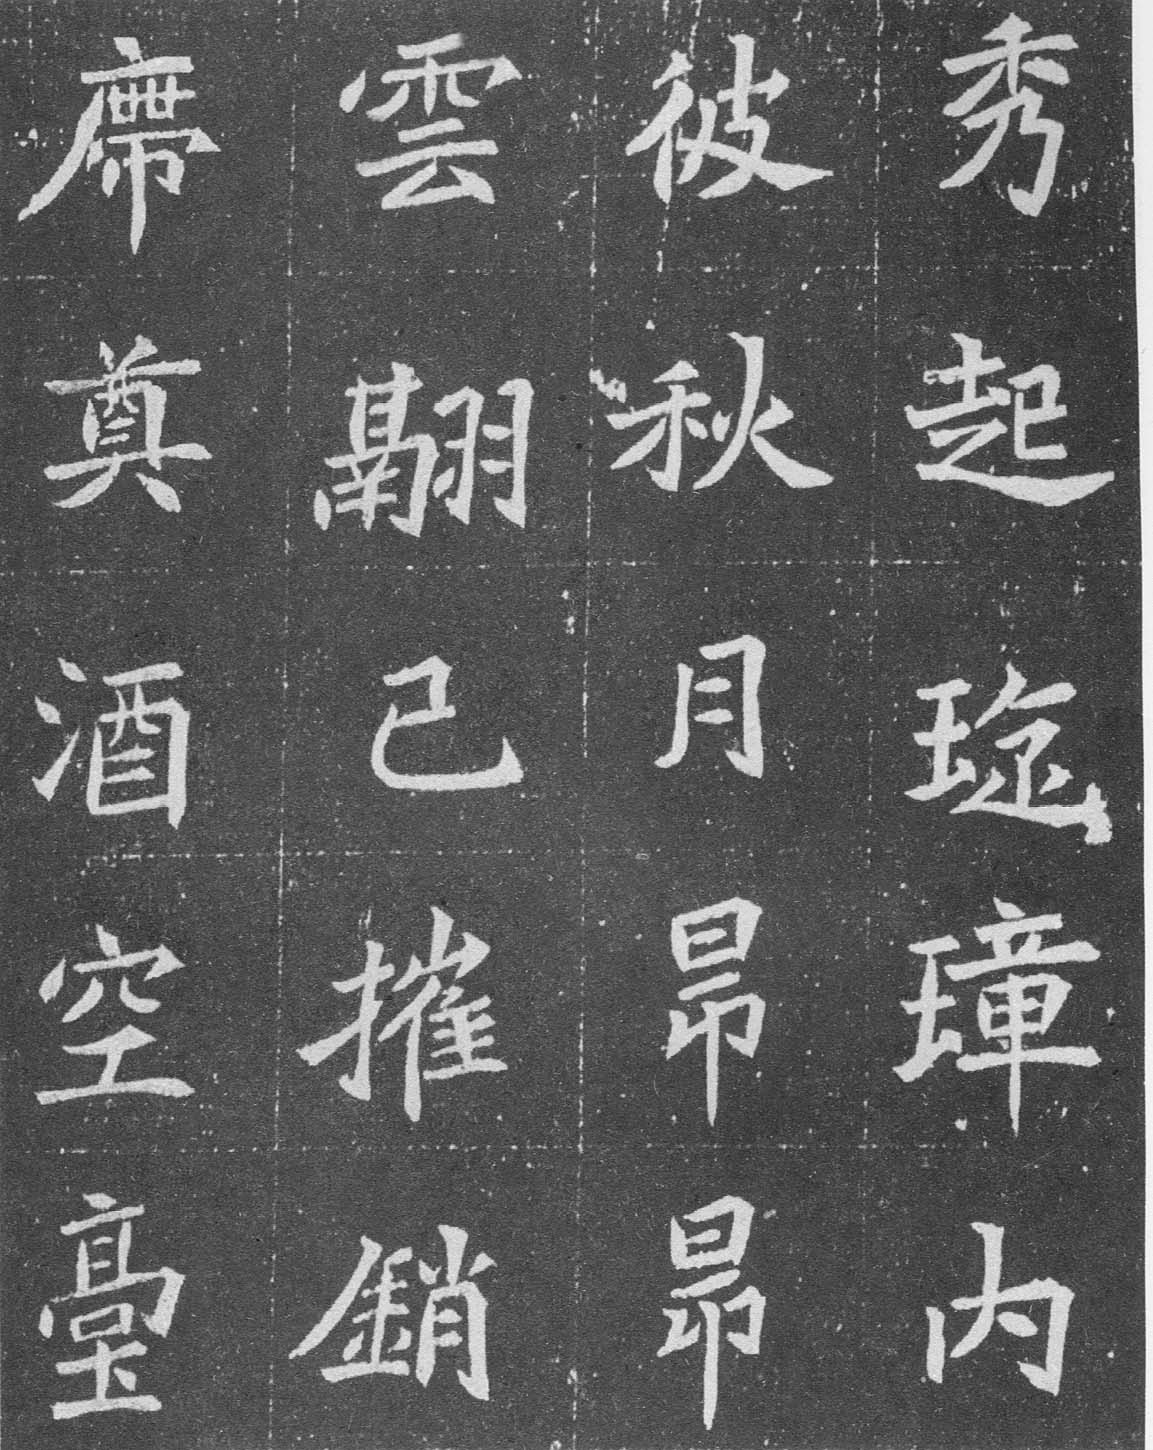 秀起璋內
彼秋月昂昂
雲翮已摧銷
席奠酒空臺